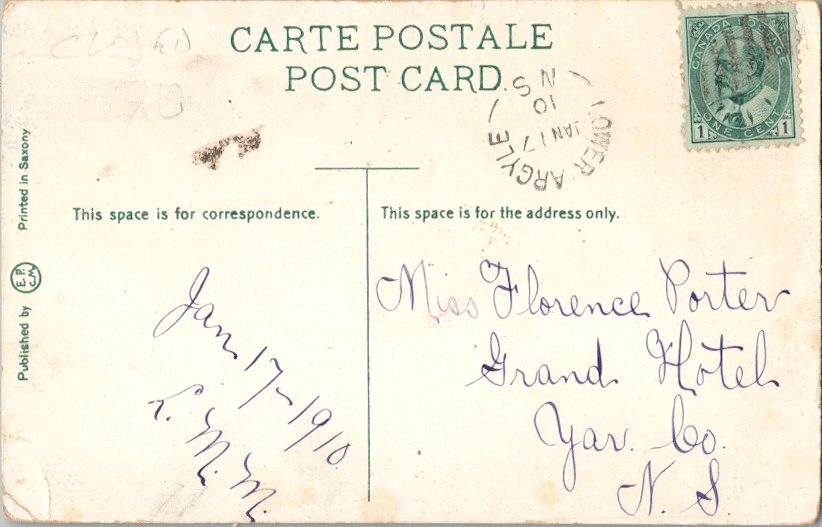 CARTE POSTALE
POST CARD.
CANADA POSTAGE
1 ONE CENT 1
LOWER ARGYLE
JAN 17
10
N S
This space is for correspondence.
This space is for the address only.
Printed in Saxony
Published by E.P. C.M.
Jan 17-1910.
L. M. M.
Miss Florence Porter
Grand Hotel
Yar. Co.
N. S.